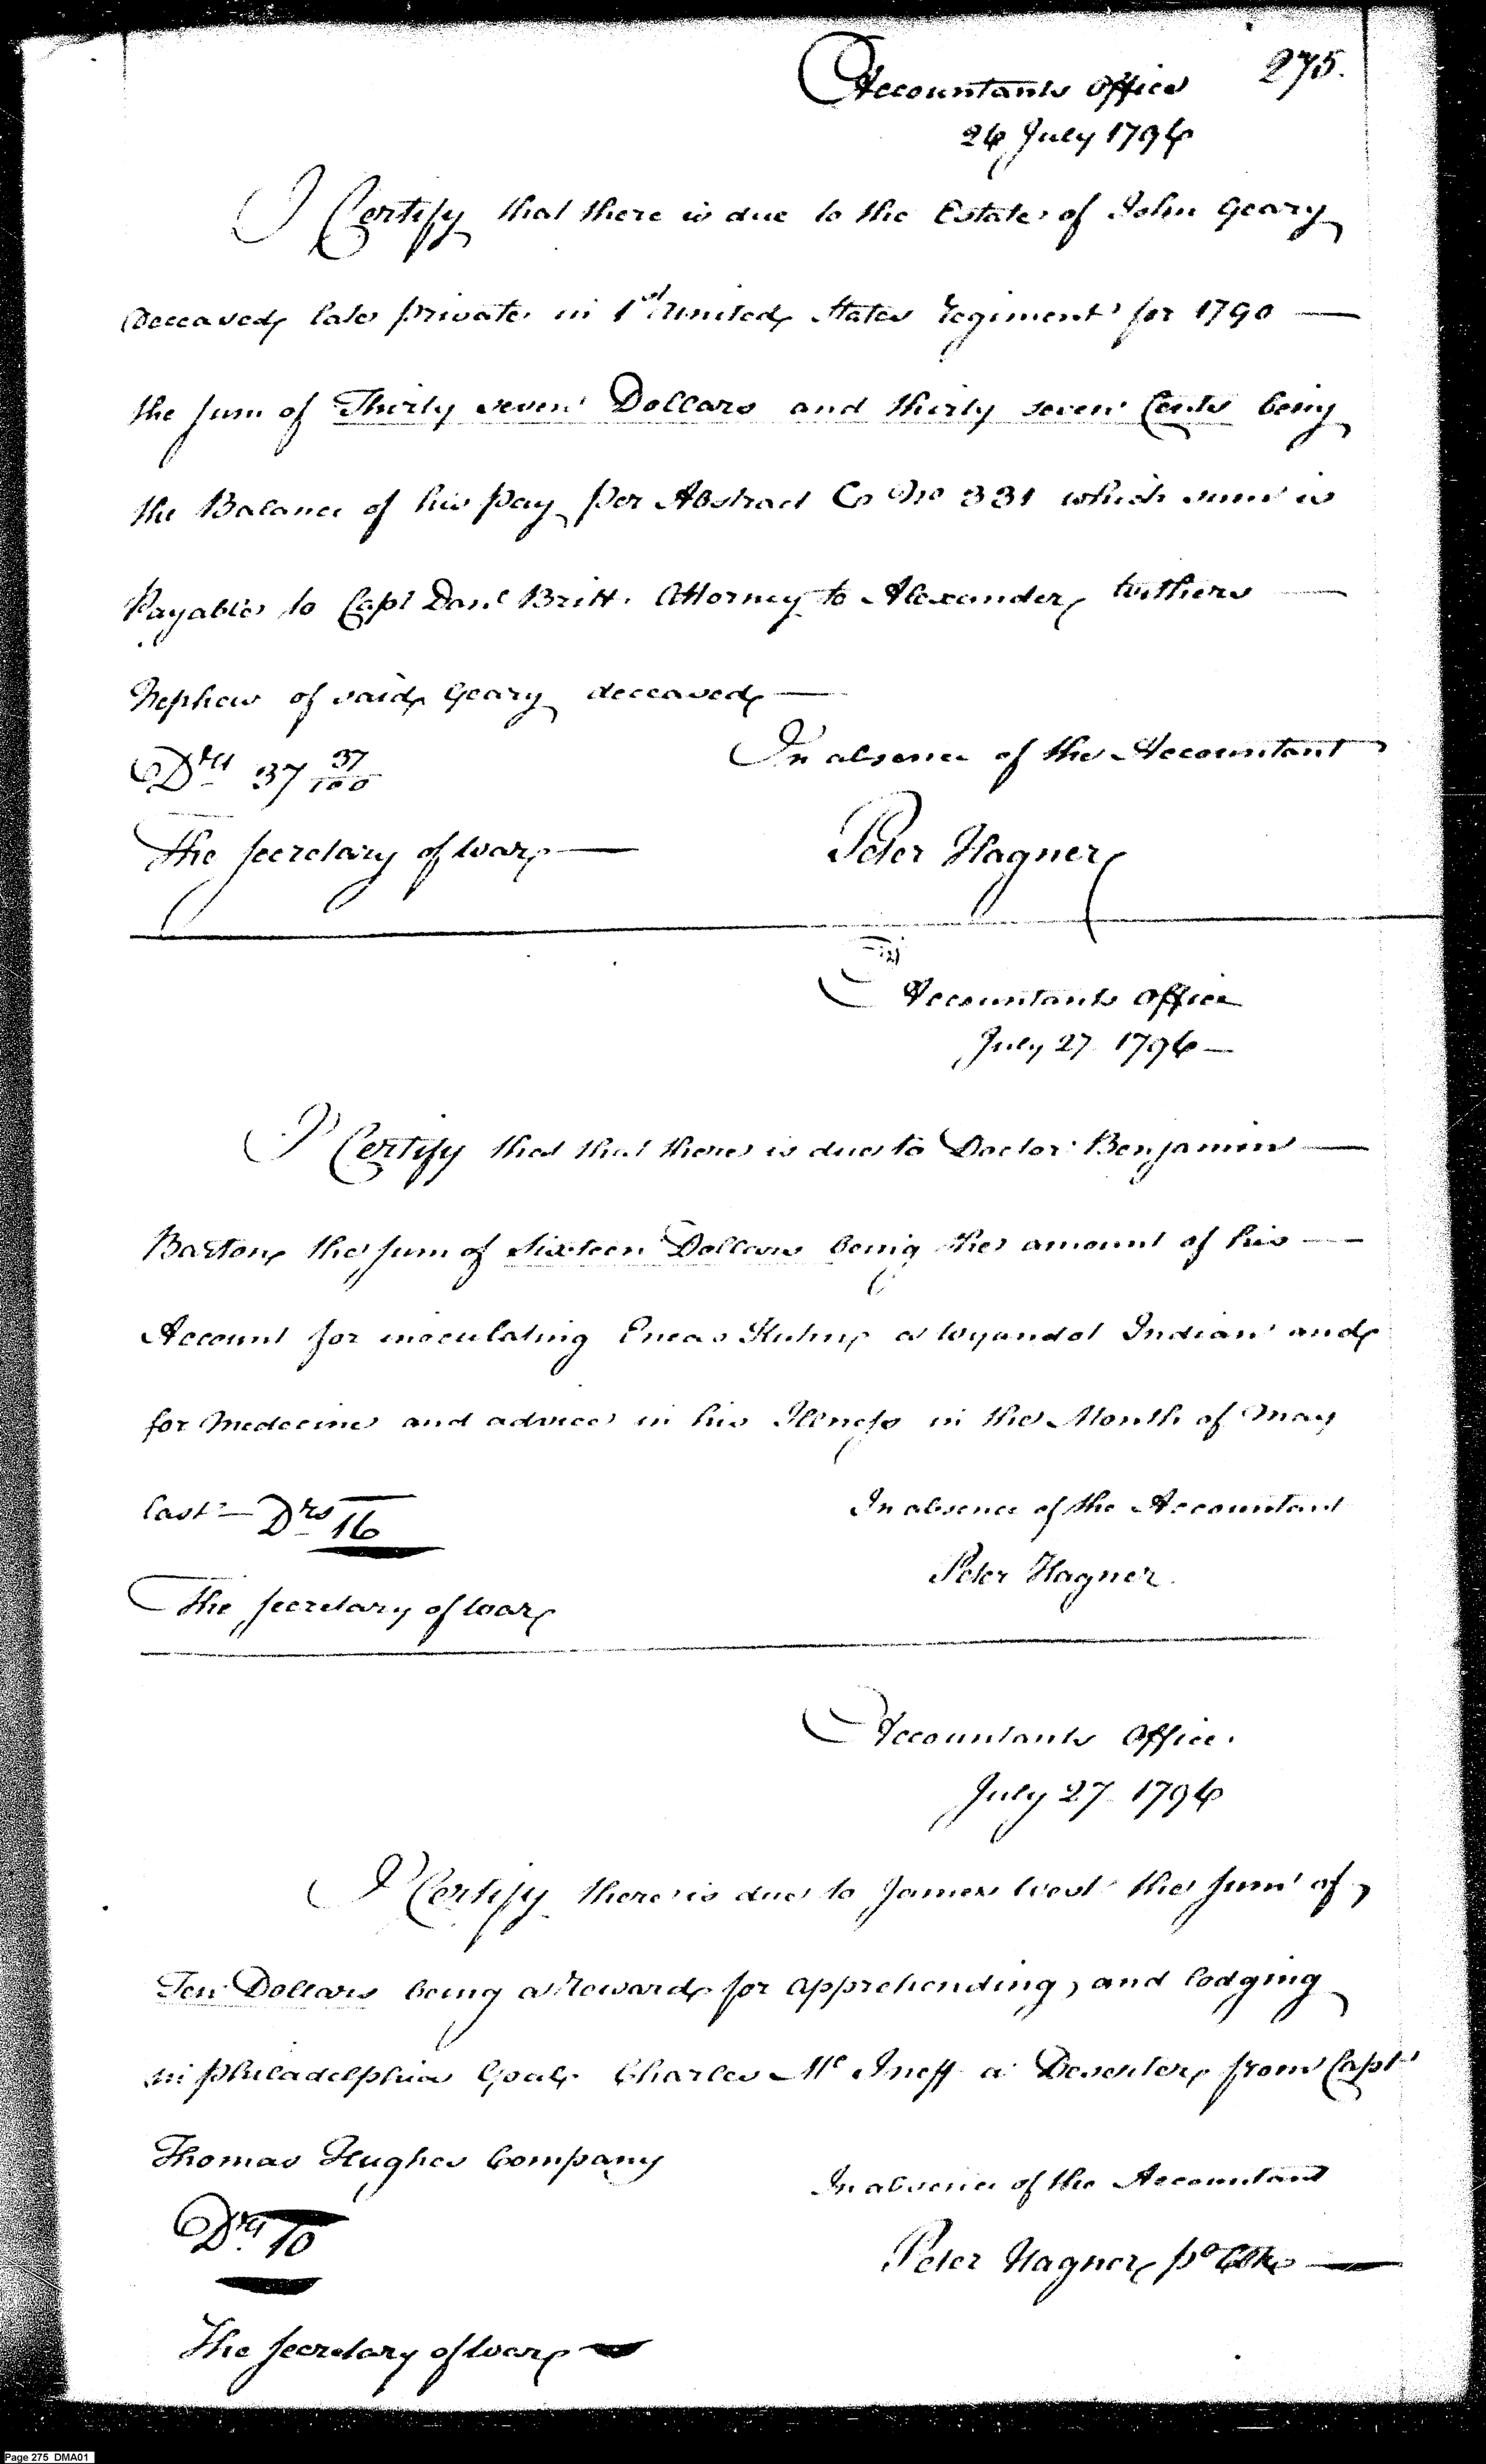 275.
Accountants Office
26 July 1796
I Certify that there is due to the Estate of John Geary
deceased late private in 1st United States regiment for 1790 —
the sum of Thirty seven Dollars and thirty seven Cents being
the Balance of his pay per Abstract Co No 331 which sum is
Payable to Capt Danl Britt. Attorney to Alexander Withers —
Nephew of said Geary deceased —
Drs 37 37/100
In absence of the Accountant
The Secretary of War —
Peter Hagner
Accountants Office
July 27 1796 —
I Certify that that there is due to Doctor Benjamin —
Barton the sum of sixteen Dollars being the amount of his —
Account for inoculating Eneas a Wyandot Indian and
for Medecine and advice in his Illness in the Month of May
last — Drs 16
In absence of the Accountant
Peter Hagner.
The Secretary of War
Accountants Office.
July 27 1796
I Certify there is due to James West the sum of
Ten Dollars being a reward for apprehending, and lodging
in philadelphia Goal Charles Mc Ineff a Deserter from Capt
Thomas Hughes Company
In absence of the Accountant
Drs 10
Peter Hagner pl Clk —
The Secretary of War —
Page 275 DMA01